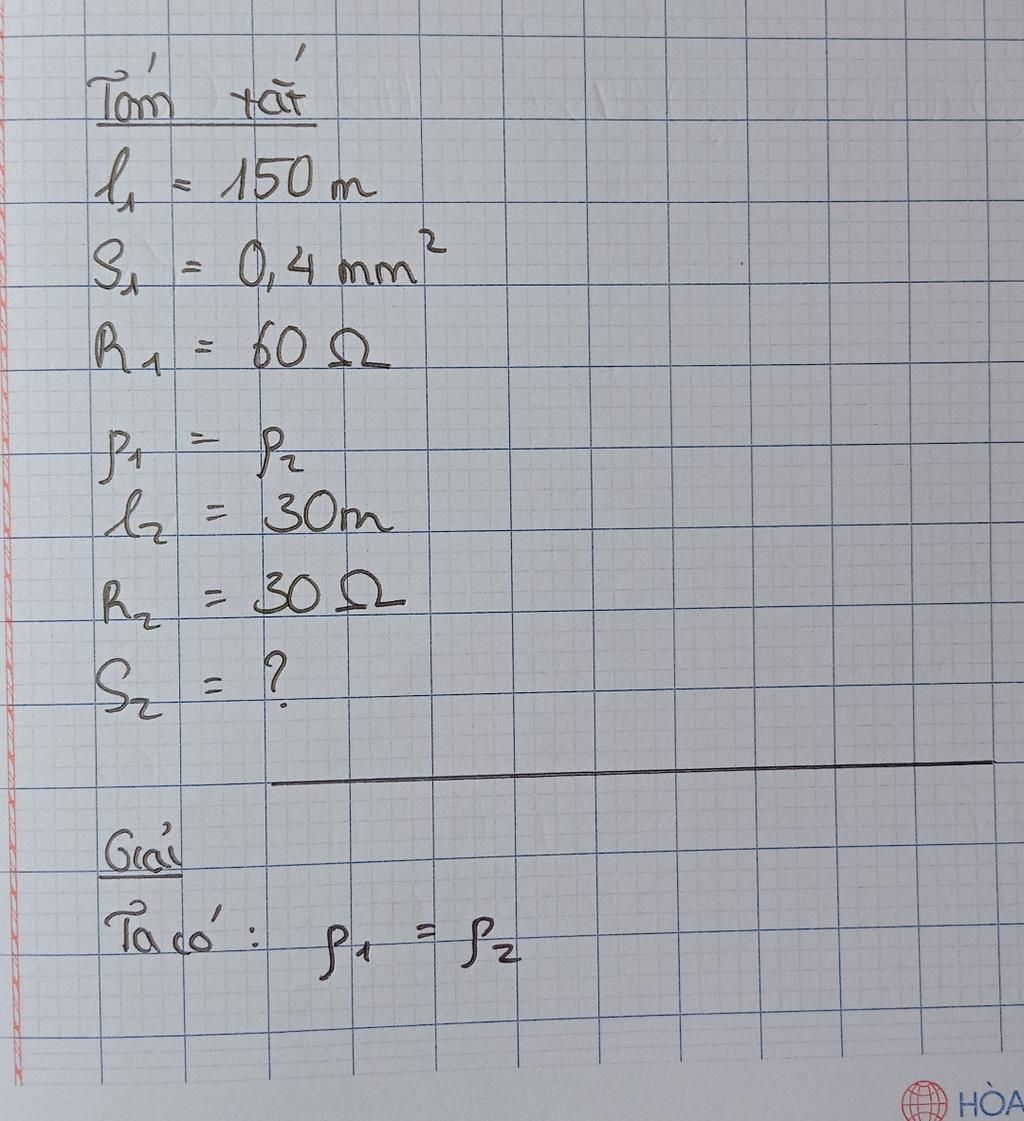 Tóm tắt
l₁ = 150 m
S₁ = 0,4 mm²
R₁ = 60 Ω
ρ₁ = ρ₂
l₂ = 30m
R₂ = 30 Ω
S₂ = ?
Giải
Ta có: ρ₁ = ρ₂
HÒA